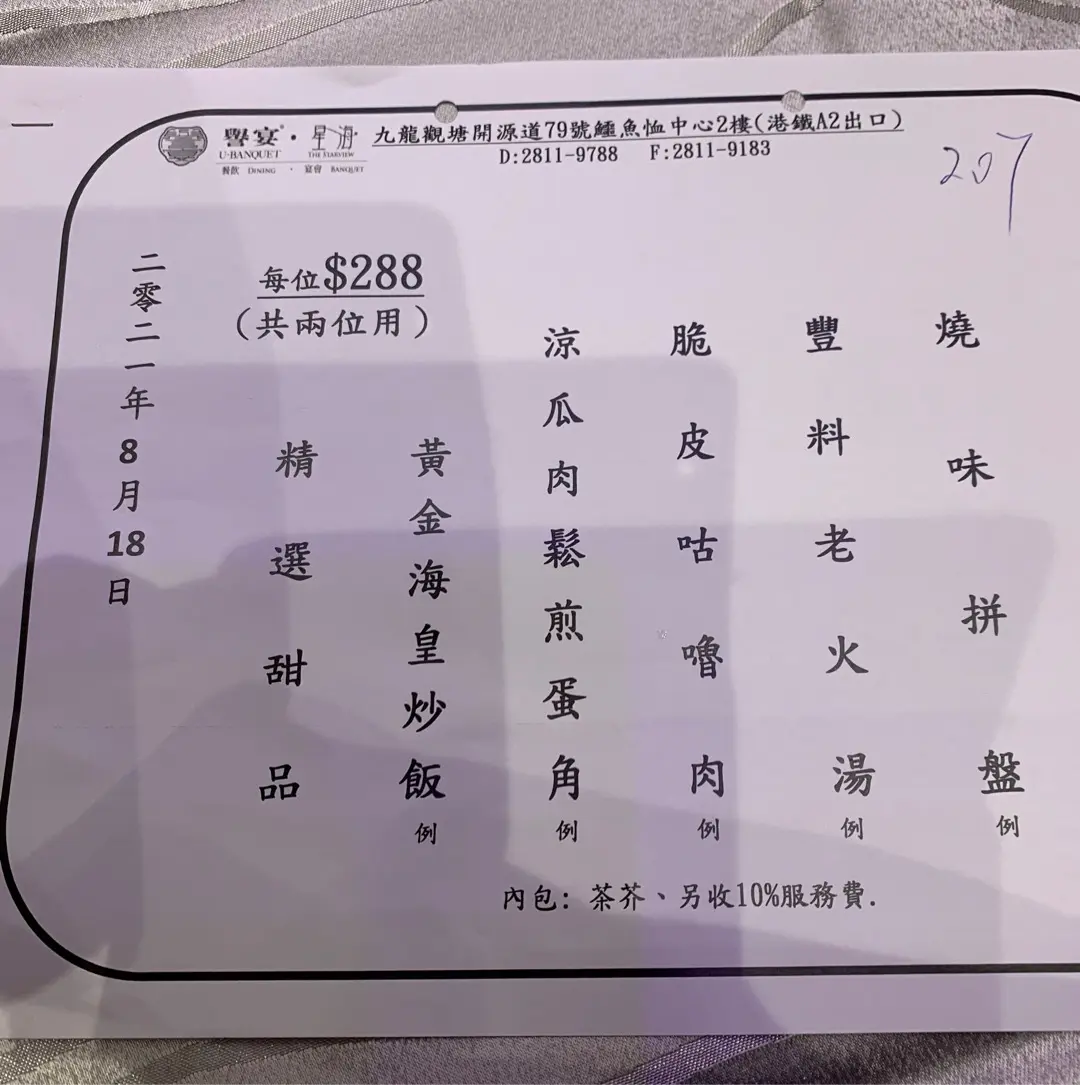 譽宴・星海
U-BANQUET THE STARVIEW
餐飲 DINING ・ 宴會 BANQUET
九龍觀塘開源道79號鱷魚恤中心2樓(港鐵A2出口)
D:2811-9788 F:2811-9183
207
燒味拼盤 例
豐料老火湯 例
脆皮咕嚕肉 例
涼瓜肉鬆煎蛋角 例
黃金海皇炒飯 例
精選甜品
每位$288
(共兩位用)
二零二一年8月18日
內包: 茶芥、另收10%服務費.